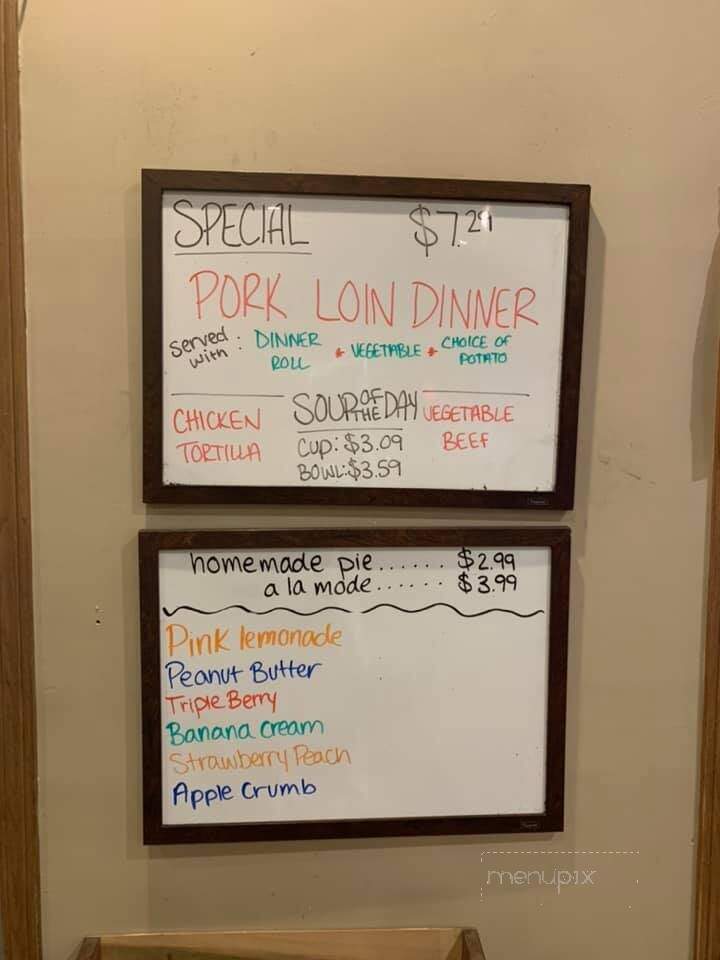 SPECIAL $7.29
PORK LOIN DINNER
served with: DINNER ROLL + VEGETABLE + CHOICE OF POTATO
SOUP OF THE DAY
CHICKEN TORTILLA
VEGETABLE BEEF
Cup: $3.09
BOWL: $3.59
homemade pie...... $2.99
a la mode...... $3.99
Pink lemonade
Peanut Butter
Triple Berry
Banana cream
Strawberry Peach
Apple Crumb
menupix